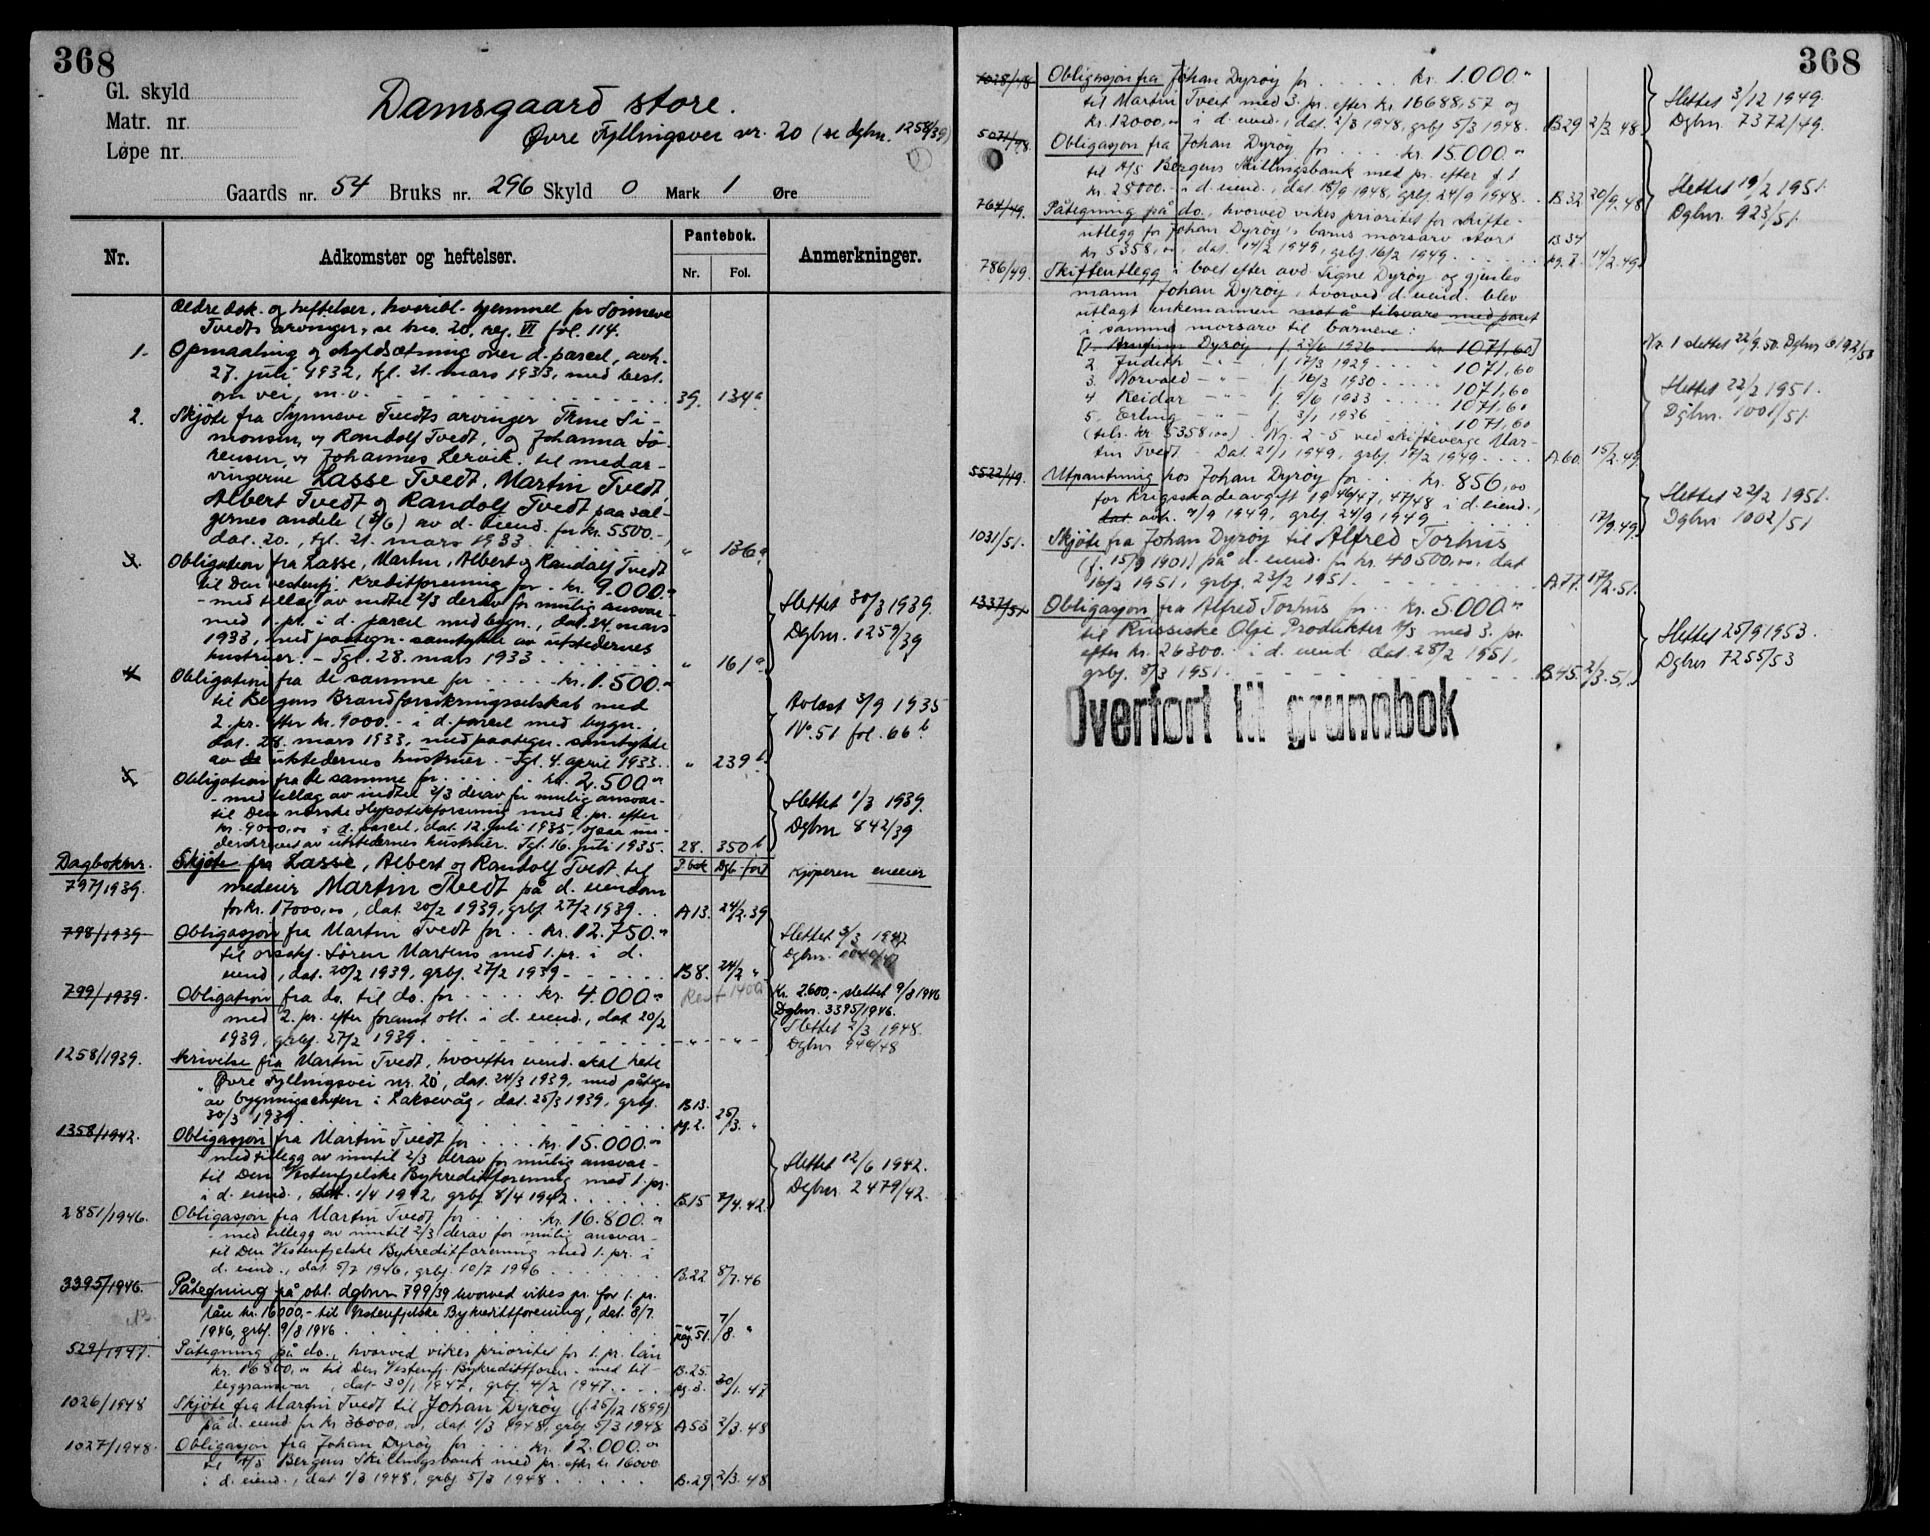 368
Gl. skyld
Matr. nr
Løpe nr.
Damsgaard store.
Øvre Fyllingsvei nr. 20 (se dgbnr. 1258/39)
Gaards nr. 54 Bruks nr. 296 Skyld 0 Mark 1 Øre
Nr.
Adkomster og heftelser.
Pantebok.
Nr.
Fol.
Anmerkninger.
Ældre dok. og heftelser, hvoribl. hjemmel for Synneve
Tvedts arvinger, se bno. 20, reg. VI fol. 114.
1. Opmaaling og skyldsætning over d. parcel, avh.
27. juli 1932, tgl. 21. mars 1933, med best.
om vei m.v. 39. 134a
2. Skjøte fra Synneve Tvedts arvinger Trine Si-
monsen, v/ Randolf Tvedt, og Johanna Sö-
rensen v/ Johannes Lervik til medar-
vingerne Lasse Tvedt, Martin Tvedt,
Albert Tvedt og Randolf Tvedt paa sæl-
gernes andele (2/6) av d. eiend. for kr. 5500.-,
dat. 20., tgl. 21. mars 1933. " 136a
3. Obligation fra Lasse, Martin, Albert og Randolf Tvedt
til Den vestenfj. Kreditforening for kr. 9.000.00
- med tillæg av indtil 2/3 derav for mulig ansvar -
med 1. pr. i d. parcel med bygn., dat. 24. mars
1933, med paategn. samtykke av utstedernes
hustruer. - Tgl. 28. mars 1933. " 161a
Slettet 30/3 1939.
Dgbnr. 1259/39
4. Obligation fra de samme for kr. 1.500.00
til Bergens Brandforsikringsselskab med
2. pr. efter kr. 9000.- i d. parcel med bygn.
dat. 28. mars 1933, med paategn. samtykke
av de utstedernes hustruer. - Tgl. 4. april 1933. " 239b
Avlæst 3/9 1935
No. 51 fol. 66b
5. Obligation fra de samme for kr. 2.500.00
- med tillæg av indtil 2/3 derav for mulig ansvar -
til Den norske Hypotekforening med 2. pr. efter
kr. 9000,00 i d. parcel, dat. 12. juli 1935, ogsaa un-
derskrevet av utstedernes hustruer. Tgl. 16. juli 1935. 28. 350b
Slettet 1/3 1939.
Dgbnr 842/39
Dagboknr.
P.bok Dgb-ført
797/1939. Skjøte fra Lasse, Albert og Randolf Tvedt til
medeier Martin Tvedt på d. eiendom
for kr. 17000,00, dat. 20/2 1939, grbf. 27/2 1939. A13. 24/2.39
Kjøperen eneeier
798/1939 Obligasjon fra Martin Tvedt for kr. 12.750.00
til orsakf. Søren Martens med 1. pr. i d.
eiend, dat. 20/2 1939, grbf. 27/2 1939 B8. 24/2 "
Slettet 3/3 1947
Dgbnr.
799/1939. Obligation fra do. til do. for kr. 4.000.00
med 2. pr. efter foranst. obl. i d. eiend., dat 20/2
1939, grbf. 27/2 1939. " "
Rest 1400.
Kr. 2.600,- slettet 9/8 1946
Dgbnr. 3395/1946.
Slettet 2/3 1948.
Dgbnr 946/48
1258/1939. Skrivelse fra Martin Tvedt, hvorefter eiend. skal hete
"Øvre Fyllingsvei nr. 20", dat. 24/3 1939, med påtegn
av bygningschefen i Laksevåg, dat. 25/3 1939, grbf.
30/3 1939 B13. pg. 2. 25/3. "
1358/1942. Obligasjon fra Martin Tvedt for kr. 15.000.00
- med tillegg av inntil 2/3 derav for mulig ansvar -
til Den Vestenfjelske Bykreditforening med 1. pr.
i d. eiend., dat. 1/4 1942, grbf 8/4 1942. B15 7/4.42
Slettet 12/6 1942.
Dgbnr. 2479/42.
2851/1946. Obligasjon fra Martin Tvedt for kr. 16.800.00
- med tillegg av inntil 2/3 derav for mulig ansvar -
til Den Vestenfjelske Bykreditforening med 1. pr. i
d. eiend., dat. 5/7 1946, grbf. 10/7 1946 B.22 8/7.46
3395/1946. Påtegning på obl. dgbnr 799/39 hvorved vikes pr. for 1. pr.
lån kr. 16000,- til Vestenfjelske Bykreditforening, dat. 8/7.
1946, grbf. 9/8 1946 pag. 51. 7/8. "
529/1947. Påtegning på do., hvorved vikes prioritet for 1. pr. lån
kr. 16800,00 til Den Vestenfj. Bykreditforen. med til-
leggsansvar, dat. 30/1 1947, grbf. 4/2 1947. B.25. pg. 3. 30/1.47
1026/1948 Skjøte fra Martin Tvedt til Johan Dyrøy (f. 25/12 1899)
på d. eiend. for kr 36000,00, dat. 1/3 1948, grbf 5/3 1948 A53 2/3.48
1027/1948. Obligasjon fra Johan Dyrøy for kr. 12.000.00
til A/S Bergens Skillingsbank med pr. efter kr 16000
i d. eiend., dat 1/3 1948, grbf 5/3 1948 B.29 2/3.48
368
1028/48 Obligasjon fra Johan Dyrøy for kr. 1.000.00
til Martin Tvedt med 3. pr. efter kr. 16688,57 og
kr. 12000,00 i d. eiend., dat. 2/3 1948, grbf 5/3 1948. B29 2/3.48.
Slettet 3/12 1949.
Dgbnr. 7372/49.
5071/48. Obligasjon fra Johan Dyrøy for kr. 15.000.00
til A/S Bergens Skillingsbank med pr. efter f. 1.
kr. 25000.- i d. eiend., dat. 18/9 1948, grbf. 24/9 1948. B32 20/9.48
Slettet 19/2 1951.
Dgbnr. 923/51.
764/49. Påtegning på do., hvorved vikes prioritet for skifte-
utlegg for Johan Dyrøy's barns morsarv stort
kr 5358,00, dat. 14/2 1949, grbf. 16/2 1949. B34 pg. 7. 14/2.49
786/49. Skifteutlegg i boet efter avd. Signe Dyrøy og gjenlev.
mann Johan Dyrøy, hvorved d. eiend. blev
utlagt enkemannen mot å tilsvare med pant
i samme morsarv til barnene:
[1. Arnfinn Dyrøy, f 23/6 1926 kr. 1071,60]
2. Judith - " - , f. 17/3 1929 1071,60
3. Norvald - " - f. 16/3 1930 1071,60
4 Reidar - " - f. 9/6 1933 1071,60
5. Erling - " - f. 3/1 1936 1071,60
(tils. kr. 5358,00). Nr. 2-5 ved skifteverge Mar-
tin Tvedt - Dat. 21/1 1949, grbf. 17/2 1949. A.60. 15/2.49.
Nr. 1 slettet 22/9.50. Dgbnr 6192/50
Slettet 22/2 1951.
Dgbnr. 1001/51.
5522/49. Utpantning hos Johan Dyrøy for kr. 856,00
for Krigsskadeavgift 1946/47, 47/48 i d. eiend.,
dat. avh. 9/9 1949, grbf. 24/9 1949 17/9.49
Slettet 22/2 1951.
Dgbnr 1002/51
1031/51. Skjøte fra Johan Dyrøy til Alfred Torhus
(f. 15/9 1901) på d. eiend. for kr. 40500,00, dat
16/2 1951, grbf. 23/2 1951. A77. 17/2.51.
1337/51. Obligasjon fra Alfred Torhus for kr. 5.000.00
til Russiske Olje Produkter A/S med 3. pr.
efter kr. 26300.- i d. eiend. dat. 28/2 1951,
grbf. 8/3 1951. B.45. 2/3.51.
Slettet 25/9 1953.
Dgbnr 7255/53
Overført til grunnbok